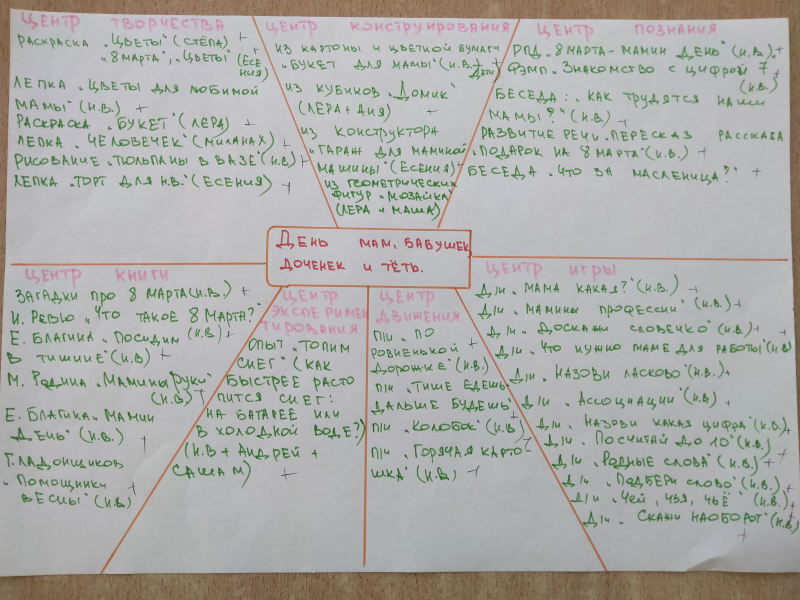 ЦЕНТР ТВОРЧЕСТВА
РАСКРАСКА „ЦВЕТЫ" (СТЁПА) +
„8 МАРТА", „ЦВЕТЫ" (ЕСЕНИЯ) +
ЛЕПКА „ЦВЕТЫ ДЛЯ ЛЮБИМОЙ
МАМЫ" (Н.В.) +
РАСКРАСКА „БУКЕТ" (ЛЕРА) +
ЛЕПКА „ЧЕЛОВЕЧЕК" (МИЛАНАХ) +
РИСОВАНИЕ „ТЮЛЬПАНЫ В ВАЗЕ" (Н.В.) +
ЛЕПКА „ТОРТ ДЛЯ Н.В." (ЕСЕНИЯ) +
ЦЕНТР КОНСТРУИРОВАНИЯ
ИЗ КАРТОНЫ И ЦВЕТНОЙ БУМАГИ
„БУКЕТ ДЛЯ МАМЫ" (Н.В. + ДЕТИ) +
ИЗ КУБИКОВ „ДОМИК"
(ЛЕРА + АНЯ) +
ИЗ КОНСТРУКТОРА
„ГАРАЖ ДЛЯ МАМИНОЙ
МАШИНЫ" (ЕСЕНИЯ) +
ИЗ ГЕОМЕТРИЧЕСКИХ
ФИГУР „МОЗАЙКА"
(ЛЕРА И МАША)
ЦЕНТР ПОЗНАНИЯ
РПД „8 МАРТА - МАМИН ДЕНЬ" (Н.В.) +
ФЭМП „ЗНАКОМСТВО С ЦИФРОЙ 7 +
(Н.В.)
БЕСЕДА: „КАК ТРУДЯТСЯ НАШИ
МАМЫ?" (Н.В.) +
РАЗВИТИЕ РЕЧИ. ПЕРЕСКАЗ РАССКАЗА
„ПОДАРОК НА 8 МАРТА" (Н.В.) +
БЕСЕДА „ЧТО ЗА МАСЛЕНИЦА?" +
ДЕНЬ МАМ, БАБУШЕК,
ДОЧЕНЕК И ТЁТЬ.
ЦЕНТР КНИГИ
ЗАГАДКИ ПРО 8 МАРТА (Н.В.) +
И. РЕВЮ „ЧТО ТАКОЕ 8 МАРТА?"
(Н.В) +
Е. БЛАГИНА „ПОСИДИМ
В ТИШИНЕ" (Н.В) +
М. РОДИНА „МАМИНЫ РУКИ"
(Н.В) +
Е. БЛАГИНА „МАМИН
ДЕНЬ" (Н.В.) +
Т. ЛАДОНЩИКОВ
„ПОМОЩНИКИ +
ВЕСНЫ" (Н.В)
ЦЕНТР
ЭКСПЕРИМЕН
ТИРОВАНИЯ
ОПЫТ „ТОПИМ
СНЕГ" (КАК
БЫСТРЕЕ РАСТО
ПИТСЯ СНЕГ:
НА БАТАРЕЕ ИЛИ
В ХОЛОДНОЙ ВОДЕ?)
(Н.В + АНДРЕЙ +
САША М) +
ЦЕНТР
ДВИЖЕНИЯ
П/И „ПО
РОВНЕНЬКОЙ +
ДОРОЖКЕ" (Н.В.)
П/И „ТИШЕ ЕДЕШЬ
ДАЛЬШЕ БУДЕШЬ" +
П/И „КОЛОБОК" (Н.В)
П/И „ГОРЯЧАЯ КАРТО-
ШКА" (Н.В) +
ЦЕНТР ИГРЫ
Д/И „МАМА КАКАЯ?" (Н.В.) +
Д/И „МАМИНЫ ПРОФЕССИИ" (Н.В.) +
Д/И „ДОСКАЖИ СЛОВЕЧКО" (Н.В) +
Д/И „ЧТО НУЖНО МАМЕ ДЛЯ РАБОТЫ" (Н.В)
Д/И „НАЗОВИ ЛАСКОВО" (Н.В.) +
Д/И „АССОЦИАЦИИ" (Н.В) +
Д/И „НАЗОВИ КАКАЯ ЦИФРА" (Н.В.) +
Д/И „ПОСЧИТАЙ ДО 10" (Н.В.) +
Д/И „РОДНЫЕ СЛОВА" (Н.В.) +
Д/И „ПОДБЕРИ СЛОВО" (Н.В.) +
Д/И „ЧЕЙ, ЧЬЯ, ЧЬЁ" (Н.В.) +
Д/И „СКАЖИ НАОБОРОТ" (Н.В) +